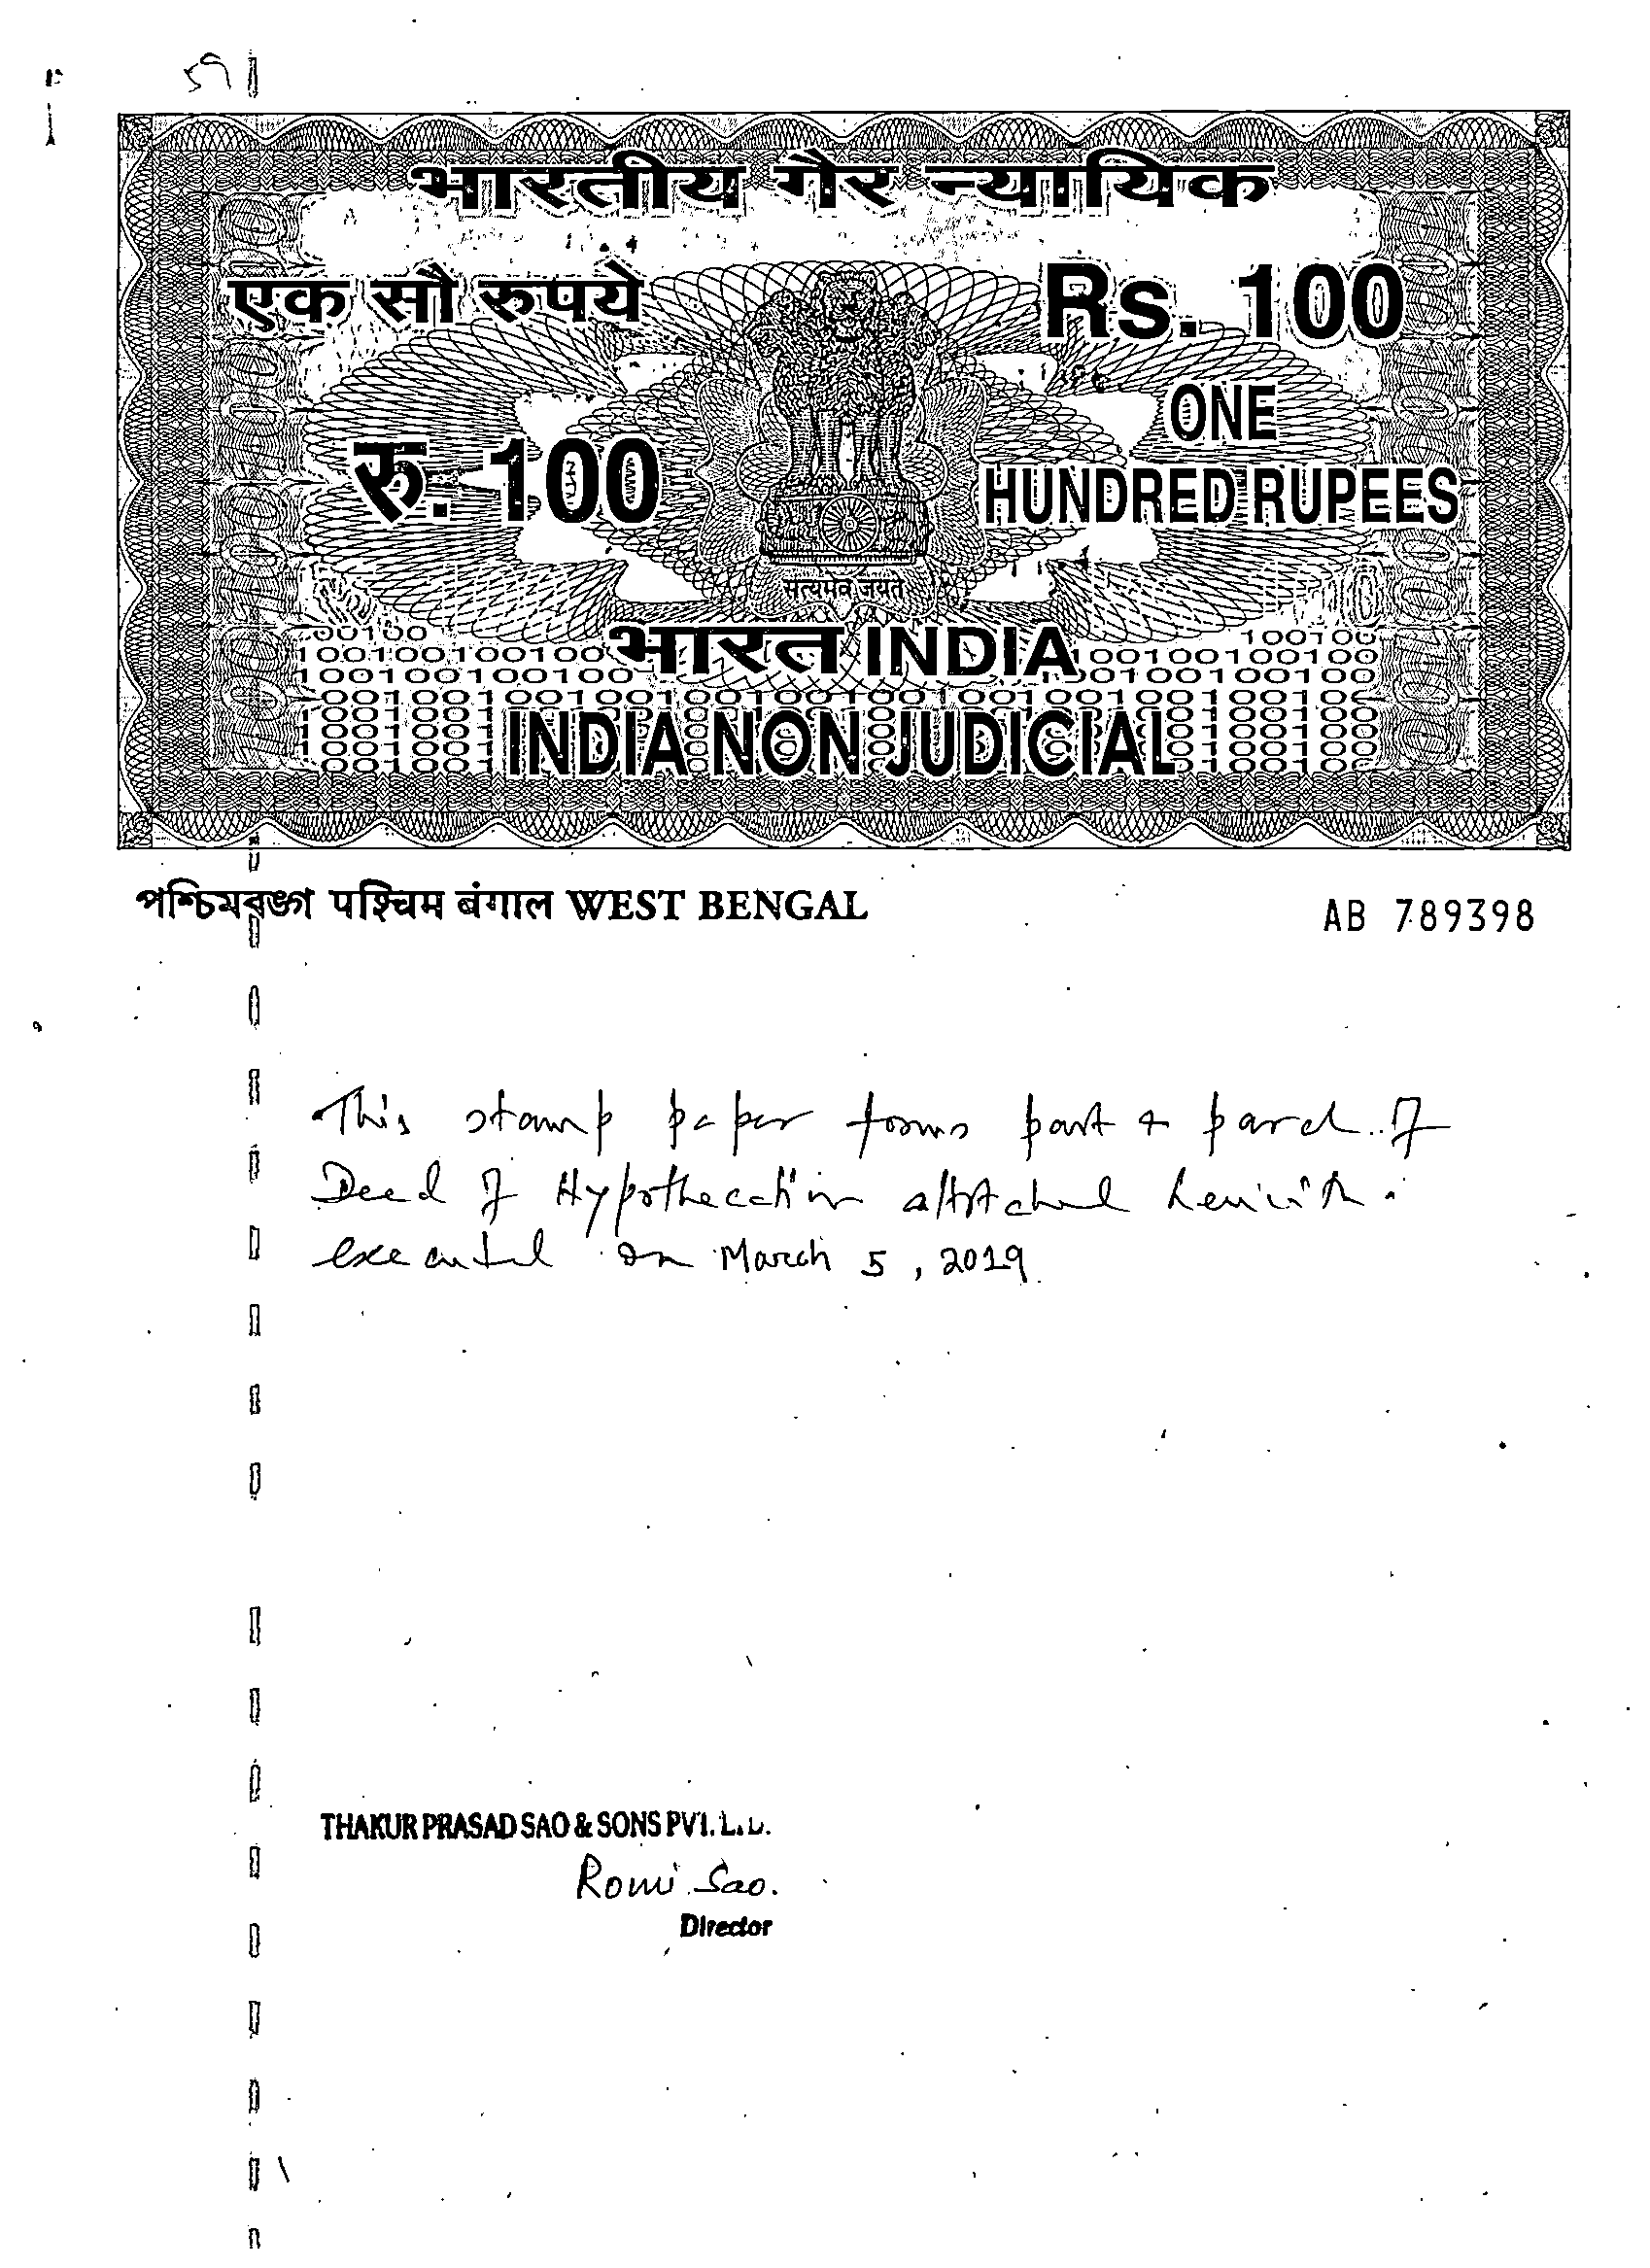 59
भारतीय गैर न्यायिक
एक सौ रुपये
Rs. 100
रु. 100
ONE
HUNDRED RUPEES
सत्यमेव जयते
भारत INDIA
INDIA NON JUDICIAL
পশ্চিমবঙ্গ पश्चिम बंगाल WEST BENGAL
AB 789398
This stamp paper forms part & parcel of
Deed of Hypothecation attached herewith
executed on March 5, 2019
THAKUR PRASAD SAO & SONS PVT. LTD.
Romi Sao.
Director